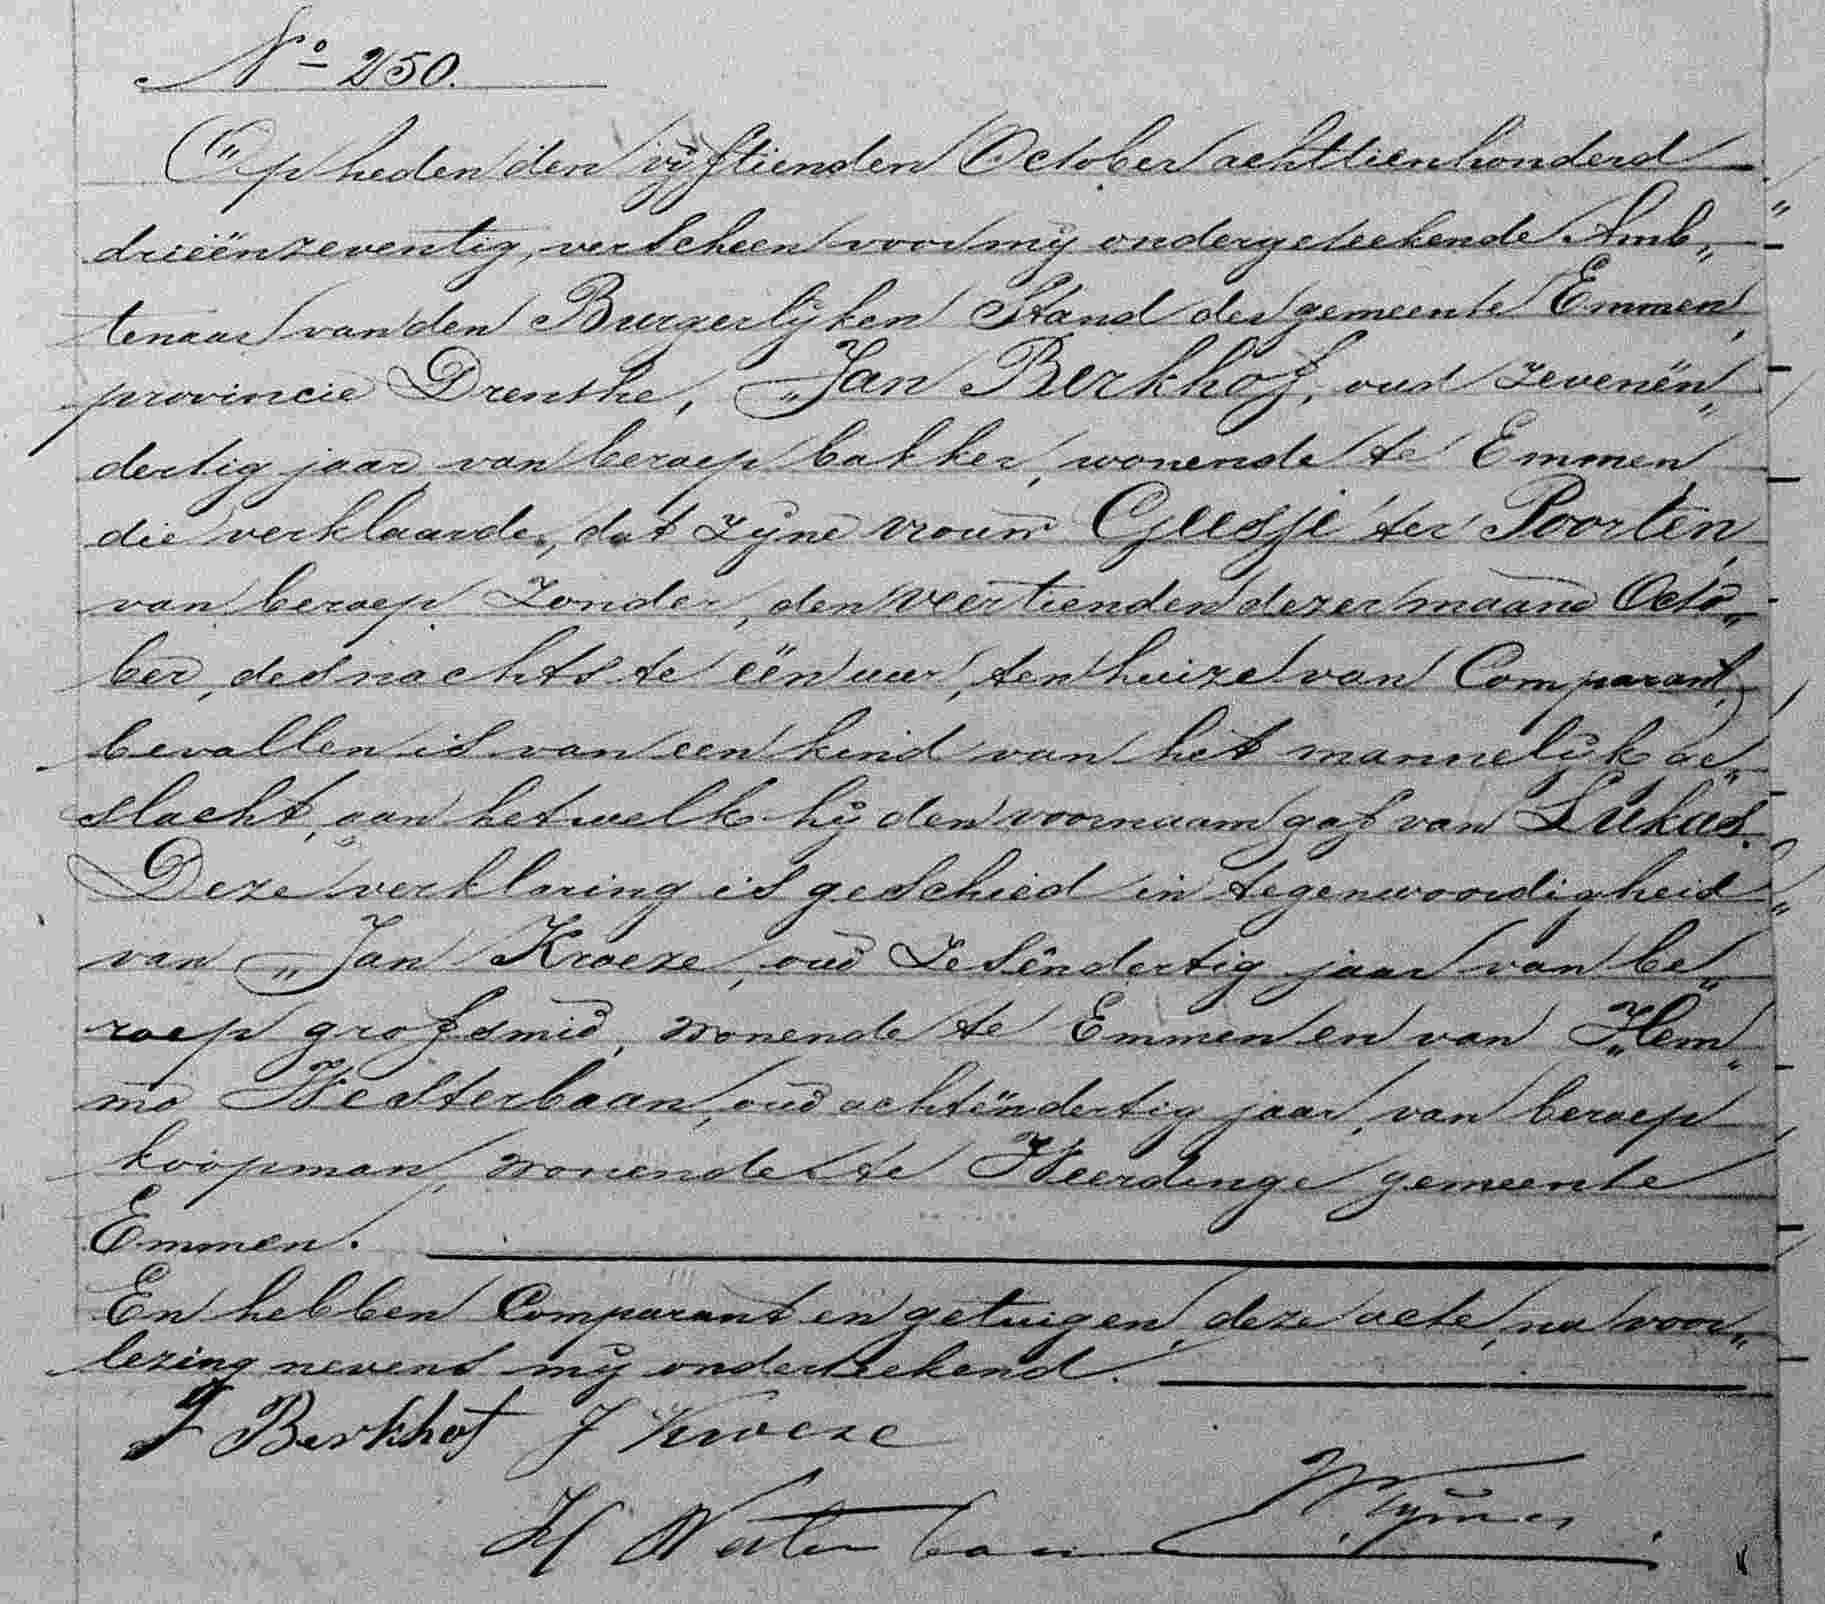 No 250.
Op heden den vijftienden October achttienhonderd
drieënzeventig, verscheen voor mij ondergeteekende Amb„
tenaar van den Burgerlijken Stand der gemeente Emmen,
provincie Drenthe, „Jan Berkhof, oud zevenën„
dertig jaar, van beroep bakker, wonende te Emmen
die verklaarde, dat zijne vrouw Geesje ter Poorten,
van beroep zonder, den veertienden dezer maand Octo„
ber, des nachts te één uur, ten huize van Comparant,
bevallen is van een kind van het mannelijk ge„
slacht, aan hetwelk hij den voornaam gaf van Lukas.
Deze verklaring is geschied in tegenwoordigheid
van „Jan Kroeze, oud zesëndertig jaar van be„
roep grofsmid, wonende te Emmen en van „Hem„
mo Westerbaan, oud achtëndertig jaar, van beroep
koopman, wonende te Weerdinge gemeente
Emmen.
En hebben Comparant en getuigen, deze acte, na voor„
lezing nevens mij onderteekend.
J Berkhof J Kroeze
H Westerbaan